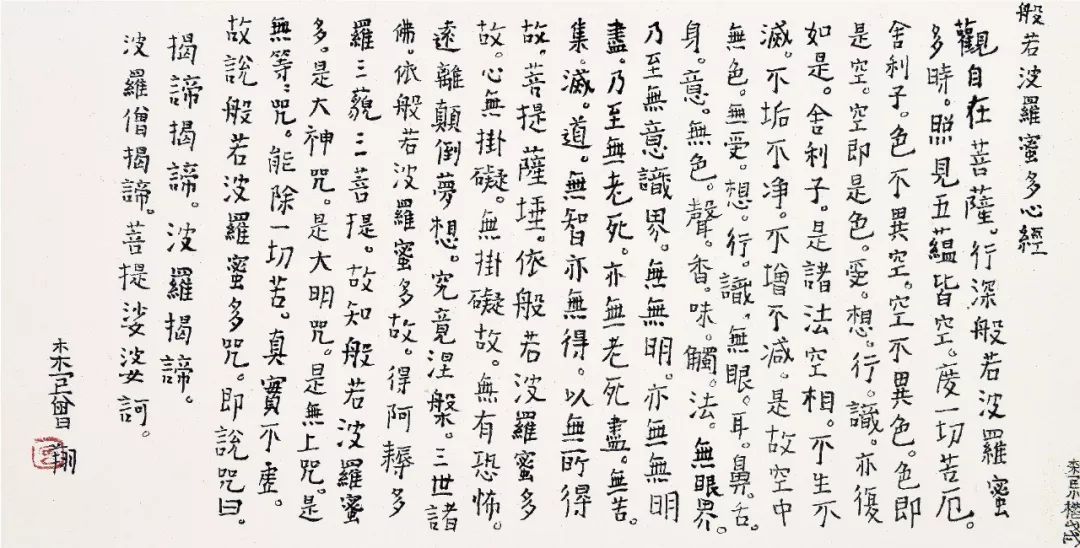 般若波羅蜜多心經
觀自在菩薩。行深般若波羅蜜
多時。照見五蘊皆空。度一切苦厄。
舍利子。色不異空。空不異色。色即
是空。空即是色。受。想。行。識。亦復
如是。舍利子。是諸法空相。不生不
滅。不垢不净。不增不減。是故空中
無色。無受。想。行。識。無眼。耳。鼻。舌。
身。意。無色。聲。香。味。觸。法。無眼界。
乃至無意識界。無無明。亦無無明
盡。乃至無老死。亦無老死盡。無苦。
集。滅。道。無智亦無得。以無所得
故。菩提薩埵。依般若波羅蜜多
故。心無掛礙。無掛礙故。無有恐怖。
遠離顛倒夢想。究竟涅槃。三世諸
佛。依般若波羅蜜多故。得阿耨多
羅三藐三菩提。故知般若波羅蜜
多。是大神咒。是大明咒。是無上咒。是
無等:咒。能除一切苦。真實不虛。
故說般若波羅蜜多咒。即說咒曰。
揭諦揭諦。波羅揭諦。
波羅僧揭諦。菩提娑婆訶。
曾翔